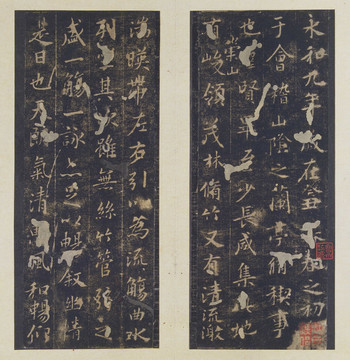 永和九年歲在癸丑之初
于會稽山陰之蘭亭脩稧事
也賢至少長咸集此地
崇山
有峻領茂林脩竹又有清流激
湍暎帶左右引以為流觴曲水
列其次雖無絲竹管弦之
盛一觴一詠亦足以暢敘幽情
是日也天朗氣清惠風和暢仰